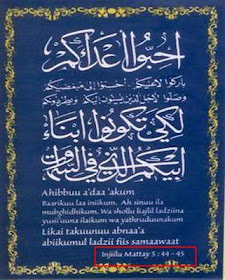 احبوا اعداءكم
باركوا لاعنيكم احسنوا إلى مبغضيكم
وصلوا لأجل الذين يسيئون إليكم ويطردونكم
لكي تكونوا أبناء
أبيكم الذي في السموات
Ahibbuu a'daa 'akum
Baarikuu laa iniikum. Ah sinuu ila
mubghidhikum. Wa shollu liajlil ladziina
yusii'uuna ilaikum wa yathruduunakum
Likai takuunuu abnaa'a
abiikumul ladzii fiis samaawaat
Injiilu Mattay 5 : 44 - 45